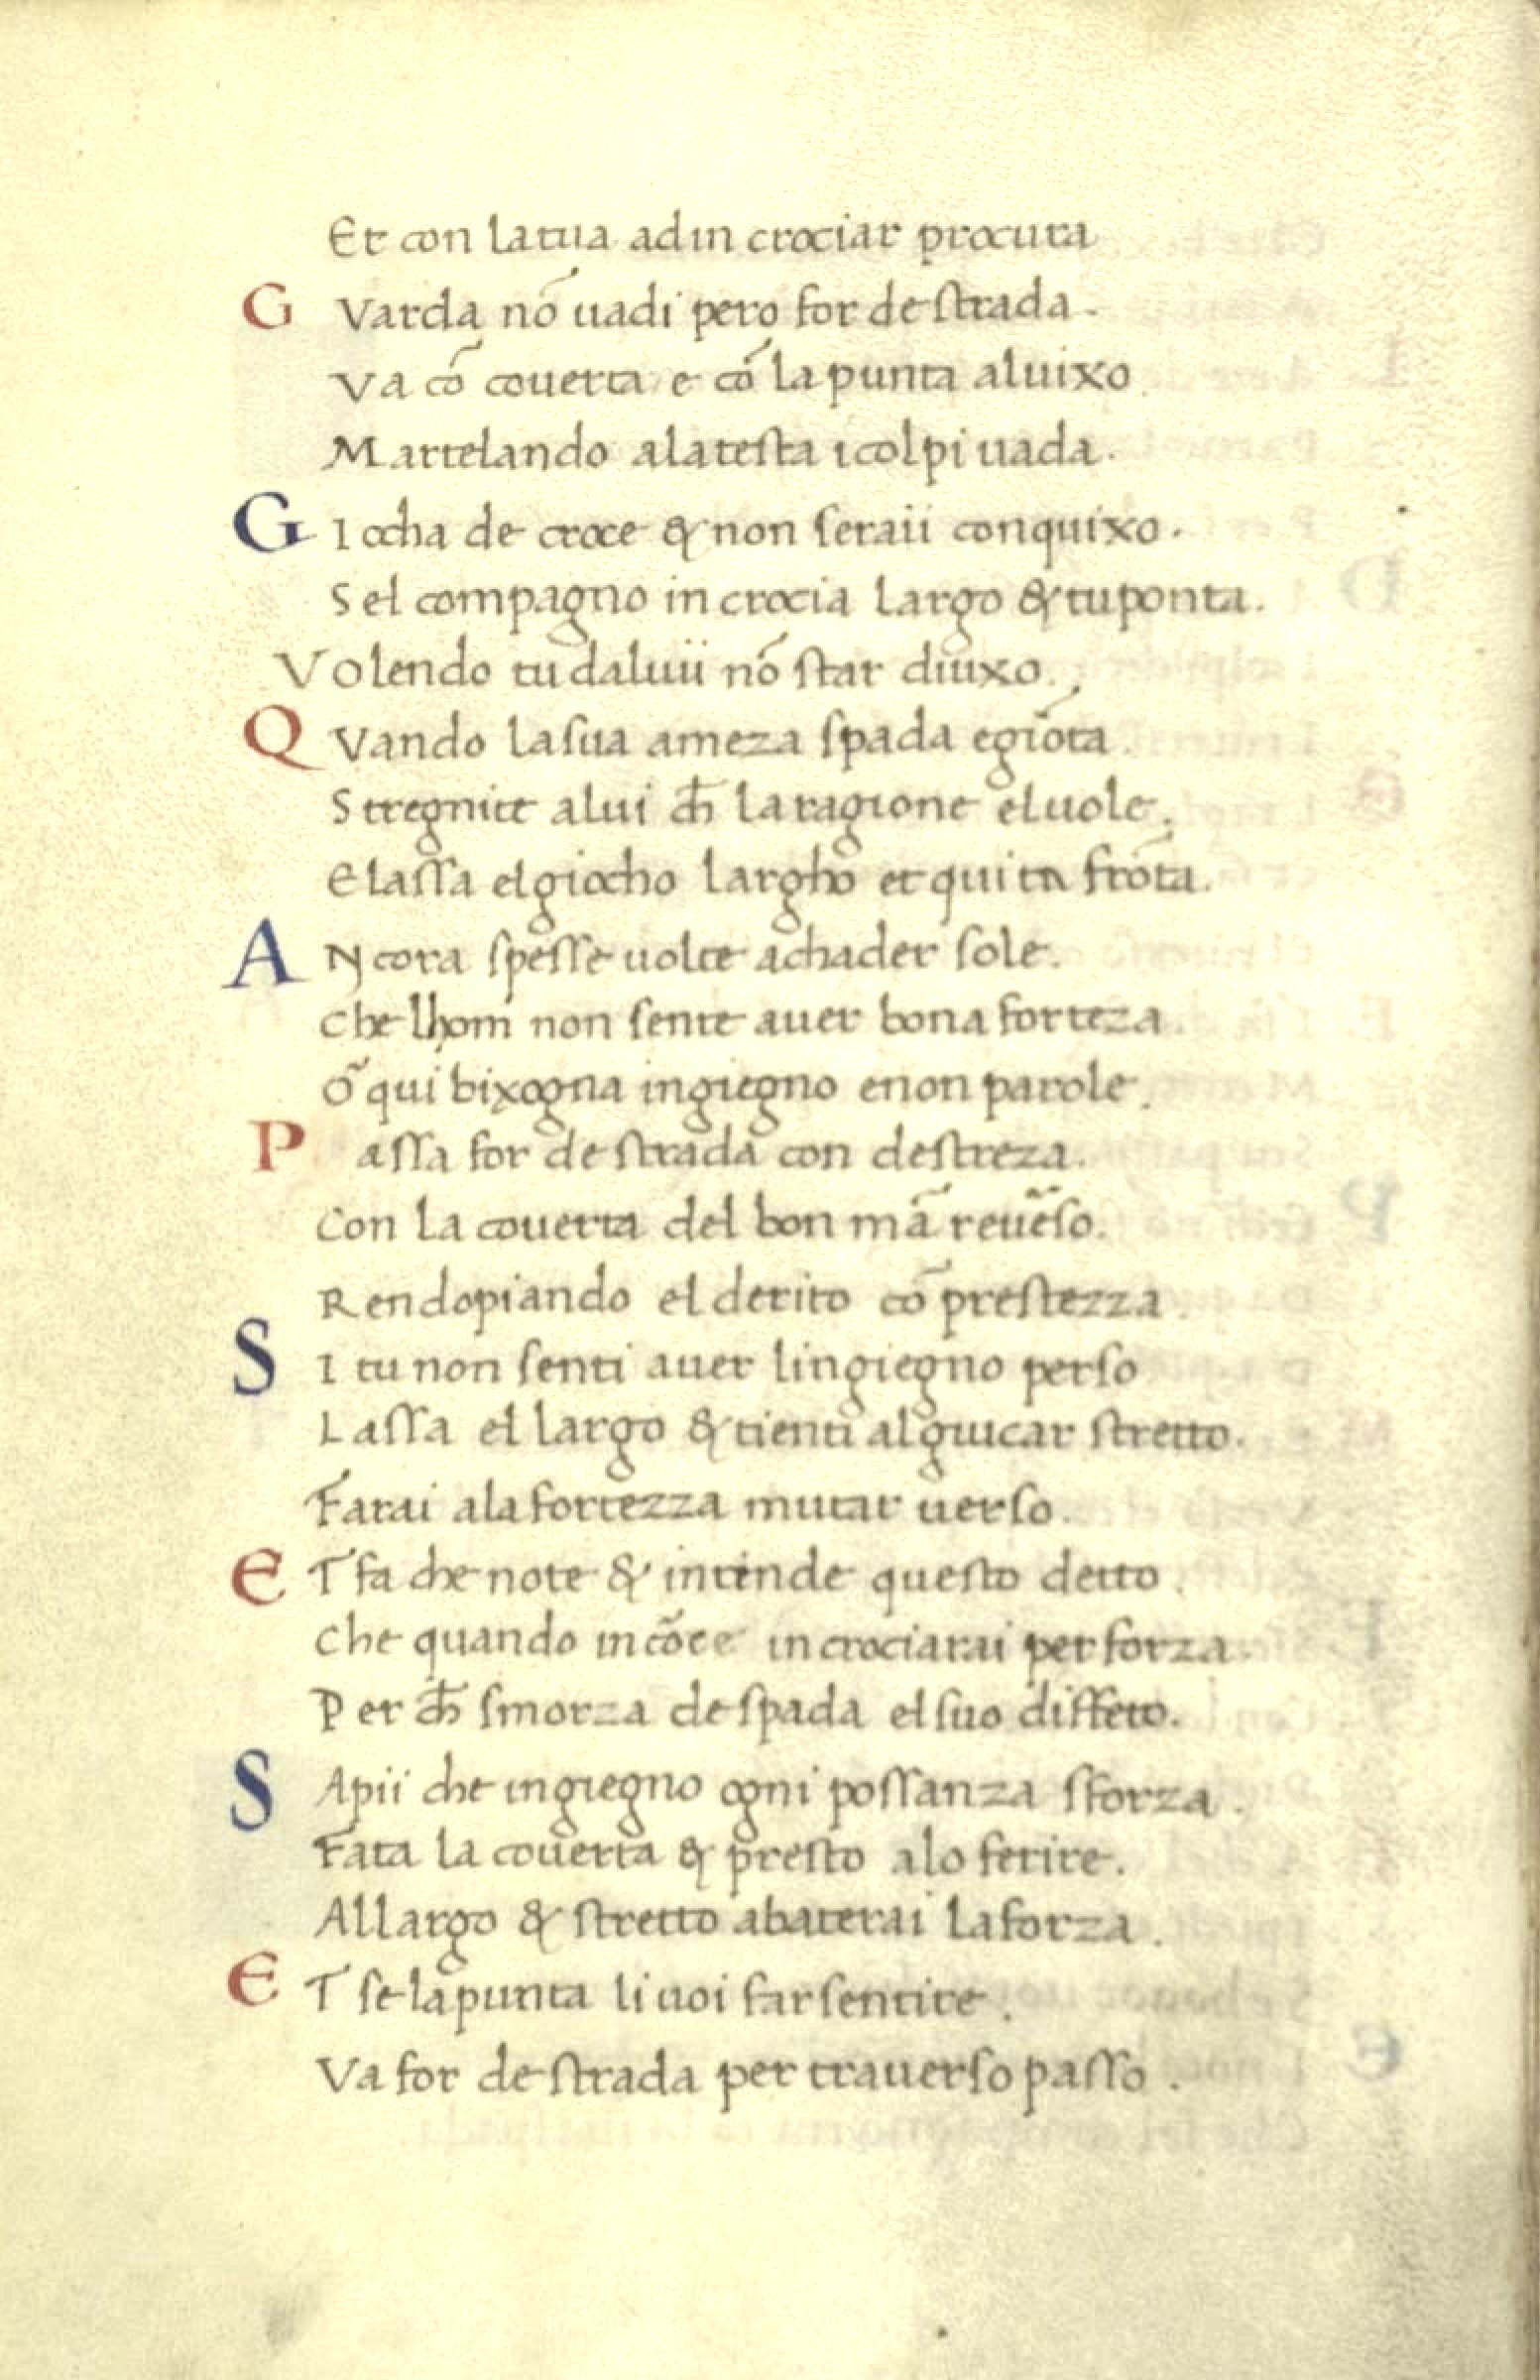 Et con la tua ad in crociar procura
G Varda nō uadi pero for de strada.
Va cō couerta e cō la punta aluixo
Martelando ala testa i colpi uada.
G Iocha de croce & non seraii conquixo.
Sel compagno in crocia largo & tu ponta.
Volendo tu daluii nō star diuixo.
Q Vando la sua ameza spada egiōta
Stregnite alui ch̄ la ragione el uole.
E lassa el giocho largho et quita frōta.
A Ncora spesse uolte achader sole.
Che lhom non sente auer bona forteza
O qui bixogna ingiegno e non parole.
P assa for de strada con destreza.
Con la couerta del bon mā reuēso.
Rendopiando el derito cō prestezza
S I tu non senti auer lingiegno perso
Lassa el largo & tienti al giucar stretto.
Farai ala fortezza mutar uerso.
E T fa che note & intende questo detto.
Che quando in cōce in crociarai per forza.
Per ch̄ smorza de spada el suo diffeto.
S Apii che ingiegno ogni possanza sforza.
Fata la couerta & presto alo ferire.
Al largo & stretto abaterai la forza.
E T se la punta li uoi far sentire.
Va for de strada per trauerso passo.